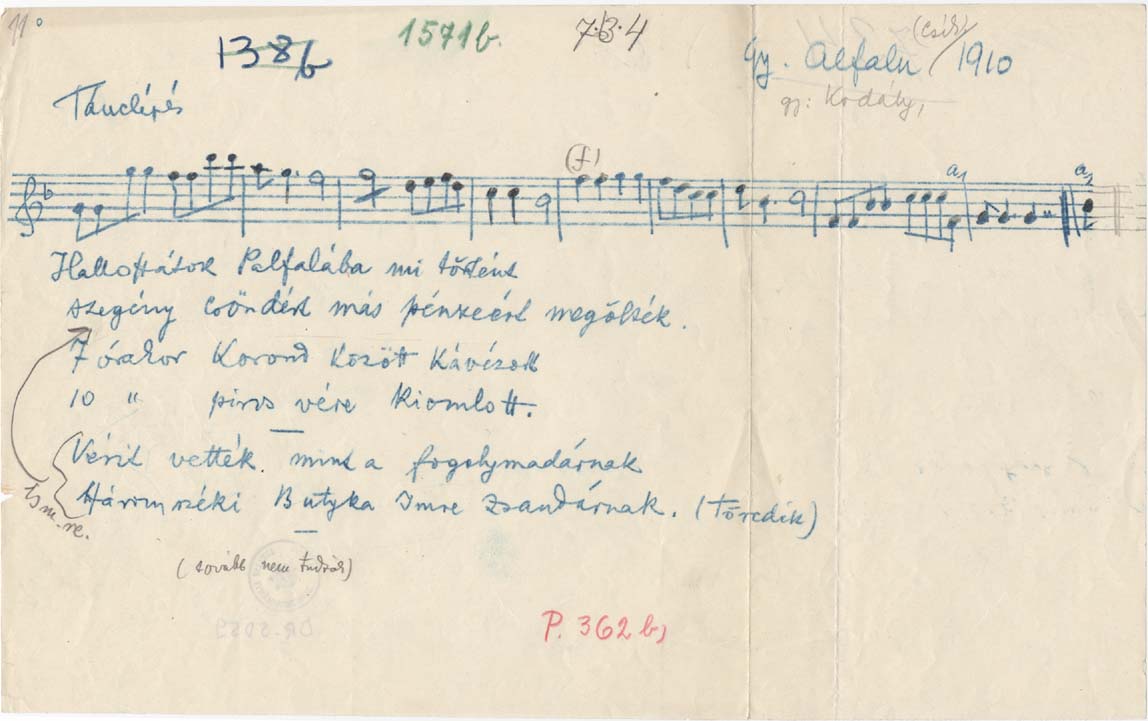 11°
138b
1571b.
7·6·4
Gy. Alfalu (Csík) 1910
gy: Kodály,
Tánclépés
(f)
a₁
a₂
Hallottátok Palfalába mi történt
szegény csöndért más pénzeért megölték.
7 órakor Korond között Kávézott
10 " piros vére kiomlott.
Vérit vették mint a fogolymadárnak
Háromszéki Butyka Imre zsandárnak. (Töredék)
Ism. re.
(tovább nem tudják)
P. 362 b,